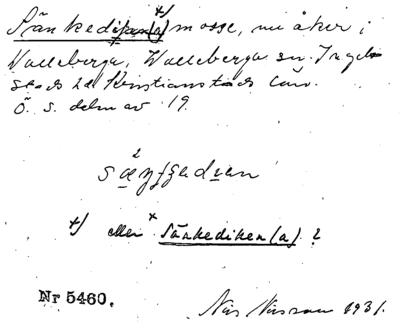 Sänkediken(a) x) mosse, nu åker i
Valleberga, Valleberga sn. Ingel-
stads hd Kristianstads län.
Ö. s. delen av 19.
x) eller x Sänkediken(a)?
Nr 5460.
Nils Nilsson 1931.